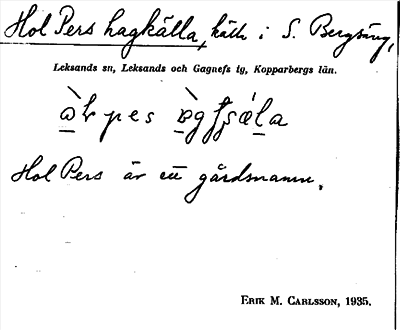 Hol Pers hagkälla, källa i S. Bergsäng,
Leksands sn, Leksands och Gagnefs tg, Kopparbergs län.
Hol Pers är ett gårdsnamn.
ERIK M. CARLSSON, 1935.